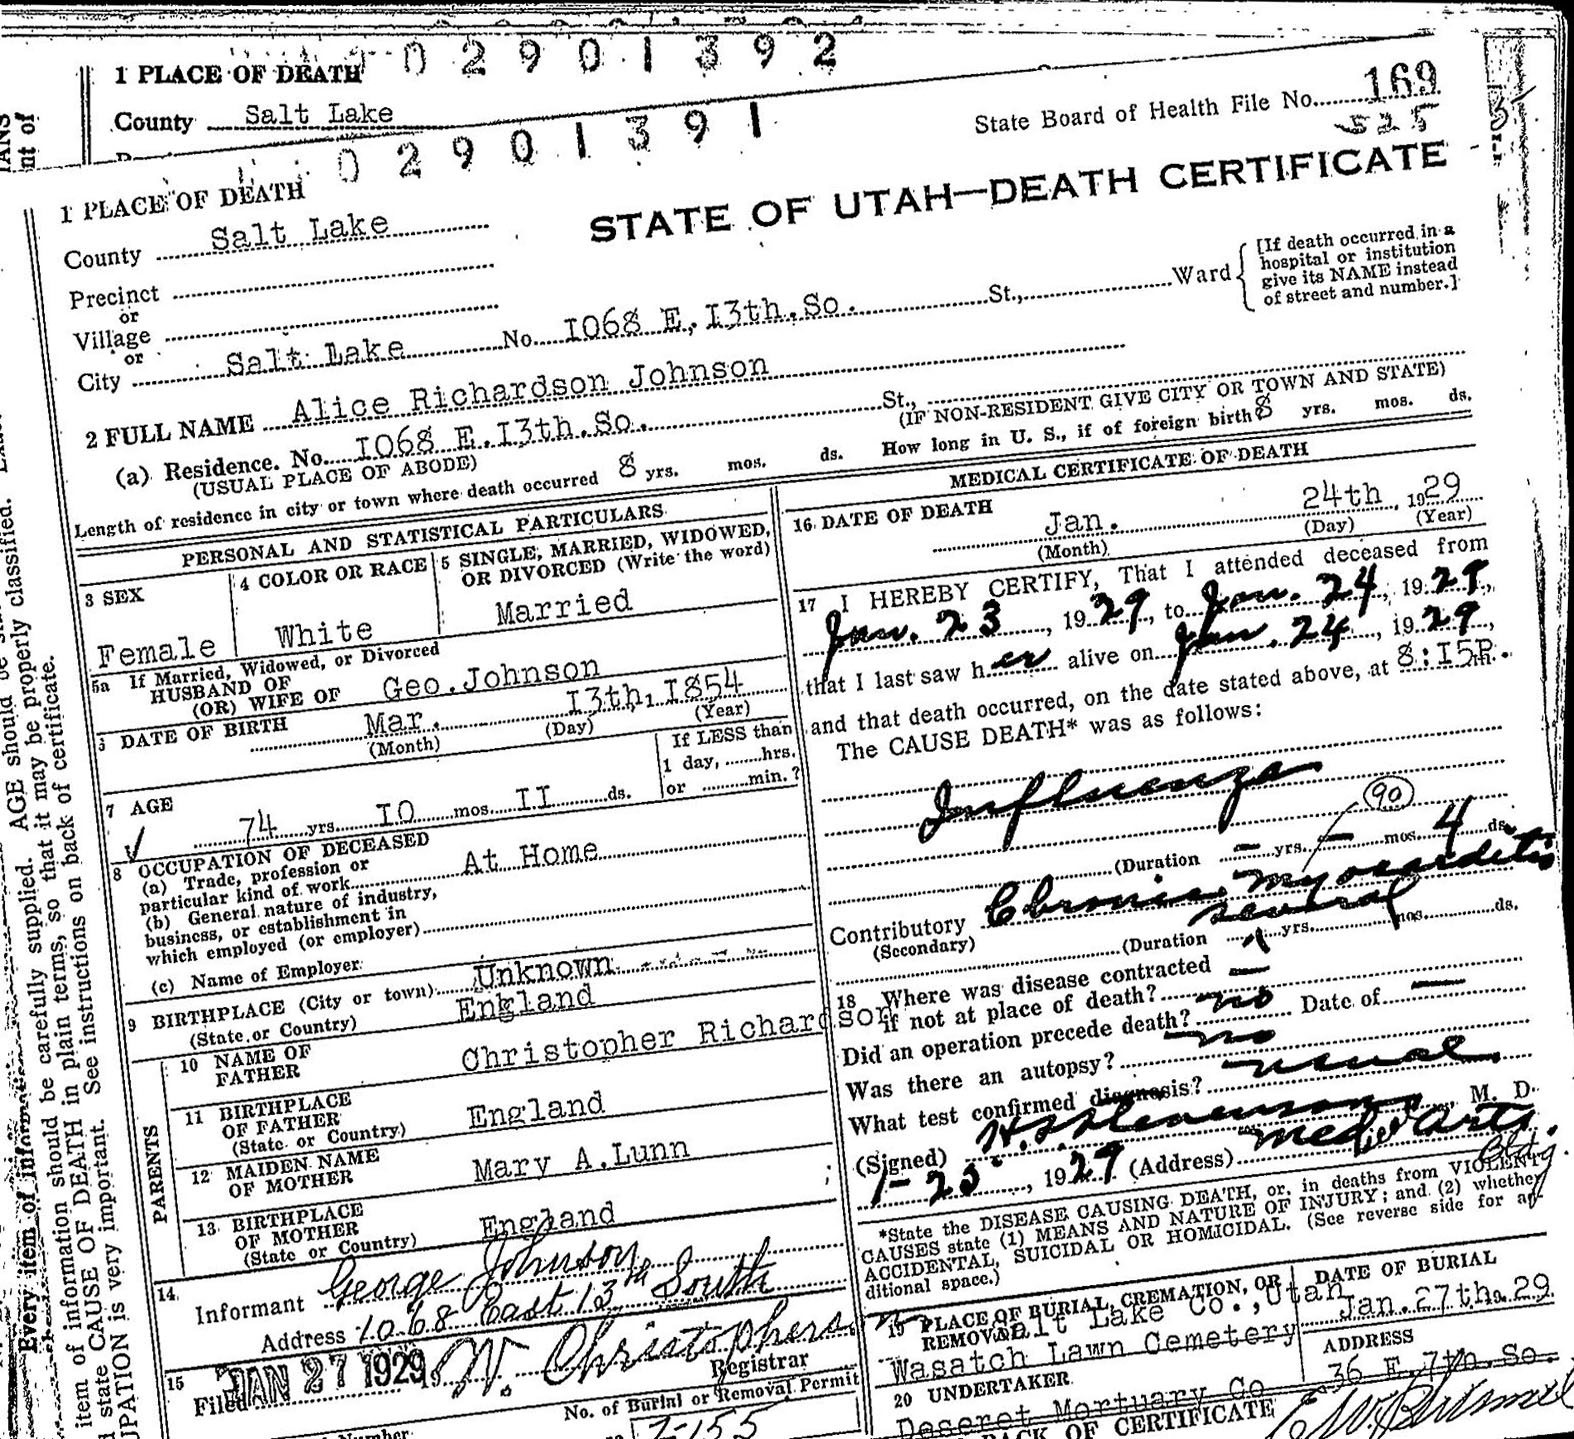 02901392
1 PLACE OF DEATH
County Salt Lake
02901391
State Board of Health File No. 169
525
1 PLACE OF DEATH
STATE OF UTAH—DEATH CERTIFICATE
County Salt Lake
Precinct
or
Village
or
City Salt Lake No. 1068 E. 13th. So. St., Ward
[If death occurred in a
hospital or institution
give its NAME instead
of street and number.]
2 FULL NAME Alice Richardson Johnson
(a) Residence. No. 1068 E. 13th. So. St.,
(USUAL PLACE OF ABODE) (IF NON-RESIDENT GIVE CITY OR TOWN AND STATE)
Length of residence in city or town where death occurred 8 yrs. mos. ds. How long in U. S., if of foreign birth 8 yrs. mos. ds.
PERSONAL AND STATISTICAL PARTICULARS
3 SEX
Female
4 COLOR OR RACE
White
5 SINGLE, MARRIED, WIDOWED,
OR DIVORCED (Write the word)
Married
5a If Married, Widowed, or Divorced
HUSBAND OF
(OR) WIFE OF Geo. Johnson
6 DATE OF BIRTH Mar. 13th, 1854
(Month) (Day) (Year)
7 AGE
74 yrs. 10 mos. 11 ds.
If LESS than
1 day, hrs.
or min.?
8 OCCUPATION OF DECEASED
(a) Trade, profession or
particular kind of work At Home
(b) General nature of industry,
business, or establishment in
which employed (or employer)
(c) Name of Employer
9 BIRTHPLACE (City or town) Unknown
(State or Country) England
PARENTS
10 NAME OF
FATHER Christopher Richardson
11 BIRTHPLACE
OF FATHER
(State or Country) England
12 MAIDEN NAME
OF MOTHER Mary A. Lunn
13 BIRTHPLACE
OF MOTHER
(State or Country) England
14
Informant George Johnson
Address 1068 East 13th South
15
Filed JAN 27 1929
Registrar
No. of Burial or Removal Permit
MEDICAL CERTIFICATE OF DEATH
16 DATE OF DEATH
Jan. 24th, 1929
(Month) (Day) (Year)
17 I HEREBY CERTIFY, That I attended deceased from
Jan. 23, 1929, to Jan. 24, 1929,
that I last saw her alive on Jan. 24, 1929,
and that death occurred, on the date stated above, at 8:15P.m.
The CAUSE DEATH* was as follows:
Influenza
90
(Duration - yrs. - mos. 4 ds.
Contributory Chronic myocarditis
(Secondary)
several
(Duration yrs. mos. ds.
18 Where was disease contracted
if not at place of death? -
Did an operation precede death? no Date of -
Was there an autopsy? no
What test confirmed diagnosis? usual
(Signed) Stevenson, M. D.
1-25, 1929 (Address) Med. Arts. Bldg.
*State the DISEASE CAUSING DEATH, or, in deaths from VIOLENT
CAUSES state (1) MEANS AND NATURE OF INJURY; and (2) whether
ACCIDENTAL, SUICIDAL OR HOMICIDAL. (See reverse side for additional space.)
19 PLACE OF BURIAL, CREMATION, OR
REMOVAL Salt Lake Co., Utah
Wasatch Lawn Cemetery
DATE OF BURIAL
Jan. 27th. 29
20 UNDERTAKER
Deseret Mortuary Co
ADDRESS
36 E. 7th. So.
BACK OF CERTIFICATE
Every item of information should be carefully supplied. AGE should be
state CAUSE OF DEATH in plain terms, so that it may be properly classified.
UPATION is very important. See instructions on back of certificate.